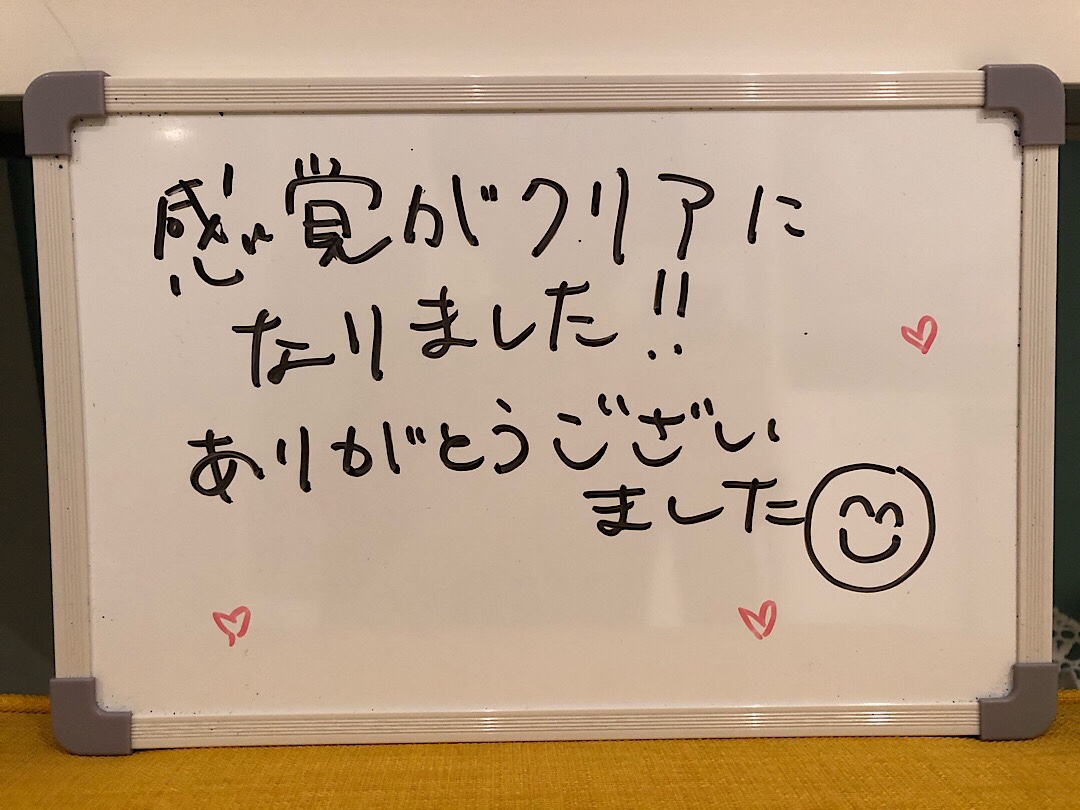 感覚がクリアに
なりました!!
ありがとうござい
ました